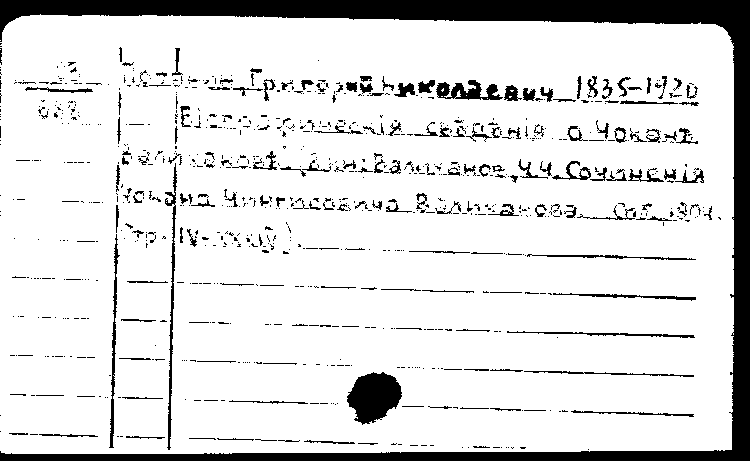 Потанин, Григорий Николаевич 1835-1920
Біографическія свѣдѣнія о Чоканѣ
Валихановѣ. (В кн: Валиханов, Ч.Ч. Сочиненія
Чокана Чингисовича Валиханова. Спб, 1904.
Стр. IV-XXXIV).